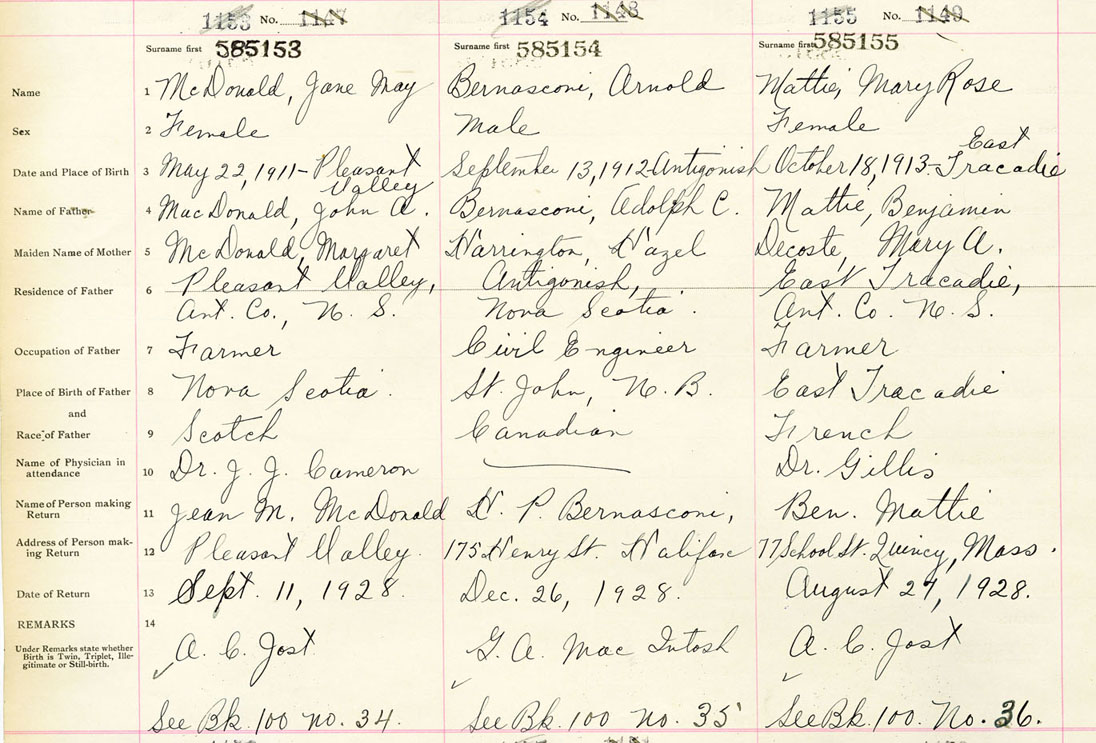 1153 No. 1147
1154 No. 1148
1155 No. 1149
Surname first 585153
Surname first 585154
Surname first 585155
Name 1 McDonald, Jane May
Bernasconi, Arnold
Mattie, Mary Rose
Sex 2 Female
Male
Female
Date and Place of Birth 3 May 22, 1911 - Pleasant
Valley
September 13, 1912 - Antigonish
October 18, 1913 - East
Tracadie
Name of Father 4 MacDonald, John A.
Bernasconi, Adolph C.
Mattie, Benjamin
Maiden Name of Mother 5 McDonald, Margaret
Harrington, Hazel
Decoste, Mary A.
Residence of Father 6 Pleasant Valley,
Ant. Co., N. S.
Antigonish,
Nova Scotia.
East Tracadie,
Ant. Co. N. S.
Occupation of Father 7 Farmer
Civil Engineer
Farmer
Place of Birth of Father 8 Nova Scotia.
St. John, N. B.
East Tracadie
and
Race of Father 9 Scotch
Canadian
French
Name of Physician in
attendance 10 Dr. J. J. Cameron
Dr. Gillis
Name of Person making
Return 11 Jean M. McDonald
H. P. Bernasconi,
Ben. Mattie
Address of Person mak-
ing Return 12 Pleasant Valley.
175 Henry St. Halifax
77 School St. Quincy, Mass.
Date of Return 13 Sept. 11, 1928.
Dec. 26, 1928.
August 27, 1928.
REMARKS 14
Under Remarks state whether
Birth is Twin, Triplet, Ille-
gitimate or Still-birth.
A. C. Jost
G. A. Mac Intosh
A. C. Jost
See Bk. 100 no. 34.
See Bk. 100 no. 35
See Bk. 100. No. 36.